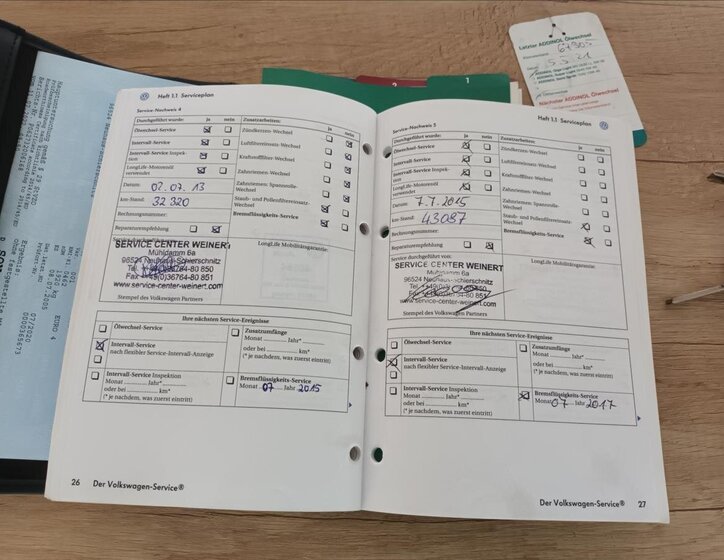 Letzter ADDINOL Ölwechsel
67305
5.5.21
Nächster ADDINOL Ölwechsel
2
1
EURO 4
07/2020
Heft 1.1 Serviceplan
Service-Nachweis 4
Durchgeführt wurde: ja nein
Zusatzarbeiten: ja nein
Ölwechsel-Service
Zündkerzen-Wechsel
Intervall-Service
Luftfiltereinsatz-Wechsel
Intervall-Service Inspek-
tion
Kraftstofffilter-Wechsel
LongLife-Motorenöl
verwendet
Zahnriemen-Wechsel
Datum: 02.07.13
Zahnriemen Spannrolle-
Wechsel
km-Stand: 32 320
Staub- und Pollenfiltereinsatz-
Wechsel
Rechnungsnummer:
Bremsflüssigkeits-Service
Reparaturempfehlung
SERVICE CENTER WEINERT
Mühldamm 6a
96524 Neuhaus-Schierschnitz
Tel. +49(0)36764-80 850
Fax +49(0)36764-80 851
www.service-center-weinert.com
Stempel des Volkswagen Partners
LongLife Mobilitätsgarantie:
Ihre nächsten Service-Ereignisse
Ölwechsel-Service
Zusatzumfänge
Monat ........ Jahr* ........
oder bei ........ km*
(* je nachdem, was zuerst eintritt)
Intervall-Service
nach flexibler Service-Intervall-Anzeige
Intervall-Service Inspektion
Monat ........ Jahr* ........
oder bei ........ km*
(* je nachdem, was zuerst eintritt)
Bremsflüssigkeits-Service
Monat 07 Jahr 2015
26 Der Volkswagen-Service®
Heft 1.1 Serviceplan
Service-Nachweis 5
Durchgeführt wurde: ja nein
Zusatzarbeiten: ja nein
Ölwechsel-Service
Zündkerzen-Wechsel
Intervall-Service
Luftfiltereinsatz-Wechsel
Intervall-Service Inspek-
tion
Kraftstofffilter-Wechsel
LongLife-Motorenöl
verwendet
Zahnriemen-Wechsel
Datum: 7.7.2015
Zahnriemen Spannrolle-
Wechsel
km-Stand: 43087
Staub- und Pollenfiltereinsatz-
Wechsel
Rechnungsnummer:
Bremsflüssigkeits-Service
Reparaturempfehlung
Service durchgeführt von:
SERVICE CENTER WEINERT
Mühldamm 6a
96524 Neuhaus-Schierschnitz
www.service-center-weinert.com
Stempel des Volkswagen Partners
LongLife Mobilitätsgarantie:
Ihre nächsten Service-Ereignisse
Ölwechsel-Service
Zusatzumfänge
Monat ........ Jahr* ........
oder bei ........ km*
(* je nachdem, was zuerst eintritt)
Intervall-Service
nach flexibler Service-Intervall-Anzeige
Intervall-Service Inspektion
Monat ........ Jahr* ........
oder bei ........ km*
(* je nachdem, was zuerst eintritt)
Bremsflüssigkeits-Service
Monat 07 Jahr 2017
Der Volkswagen-Service® 27